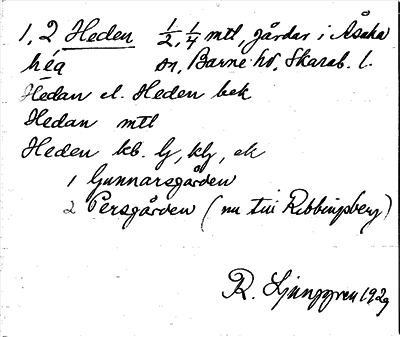 1, 2 Heden 1/2, 1/4 mtl, gårdar i Åsaka
héa sn, Barne hd, Skarab. l.
Hedan el. Heden bek
Hedan mtl
Heden kb. lj, klj, ek
1 Gunnarsgården
2 Persgården (nu till Ribbingsberg)
R. Ljunggren 1929